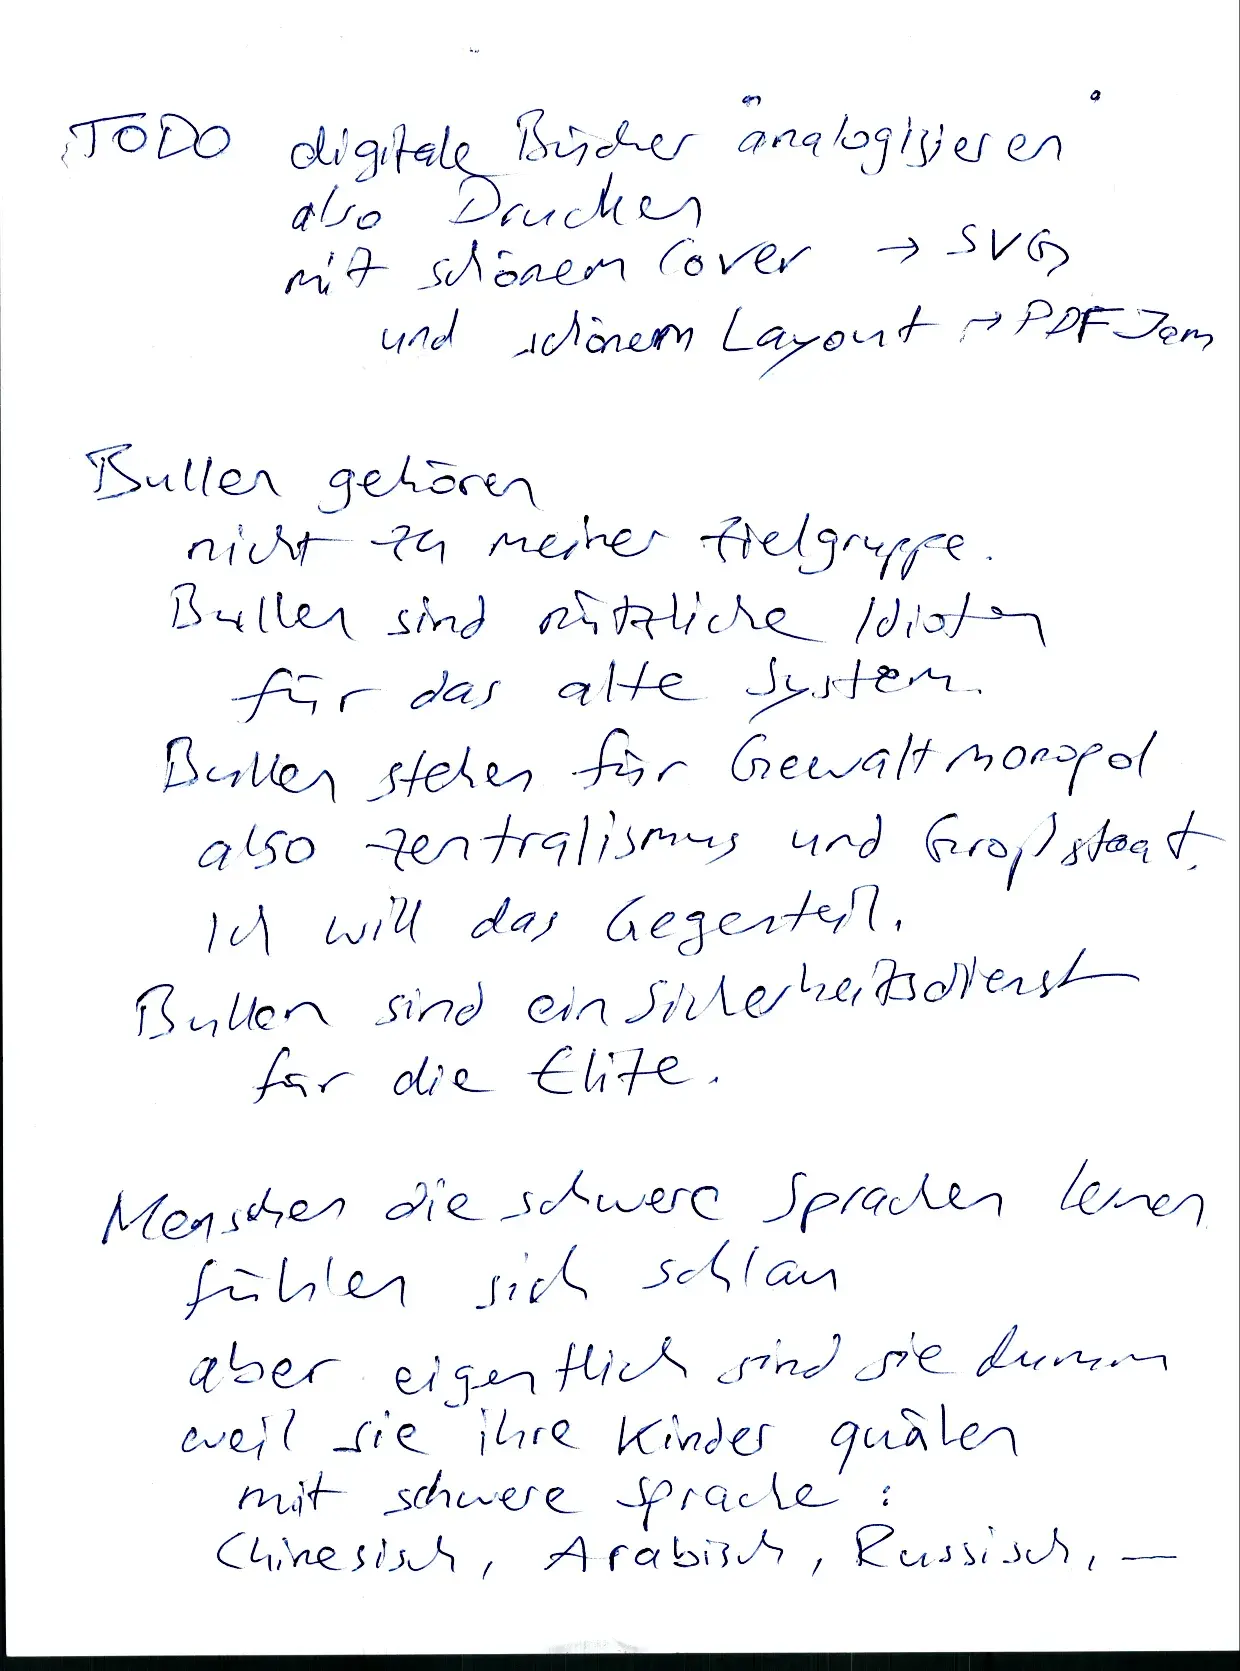 TODO digitale Bücher analogisieren
also Drucken
mit schönem Cover → SVG
und schönem Layout → PDFJam
Bullen gehören
nicht zu meiner Zielgruppe.
Bullen sind nützliche Idioten
für das alte System.
Bullen stehen für Gewaltmonopol
also Zentralismus und Großstaat.
Ich will das Gegenteil.
Bullen sind ein Sicherheitsdienst
für die Elite.
Menschen die schwere Sprachen lernen
fühlen sich schlau
aber eigentlich sind sie dumm
weil sie ihre Kinder quälen
mit schwere Sprache:
Chinesisch, Arabisch, Russisch, —